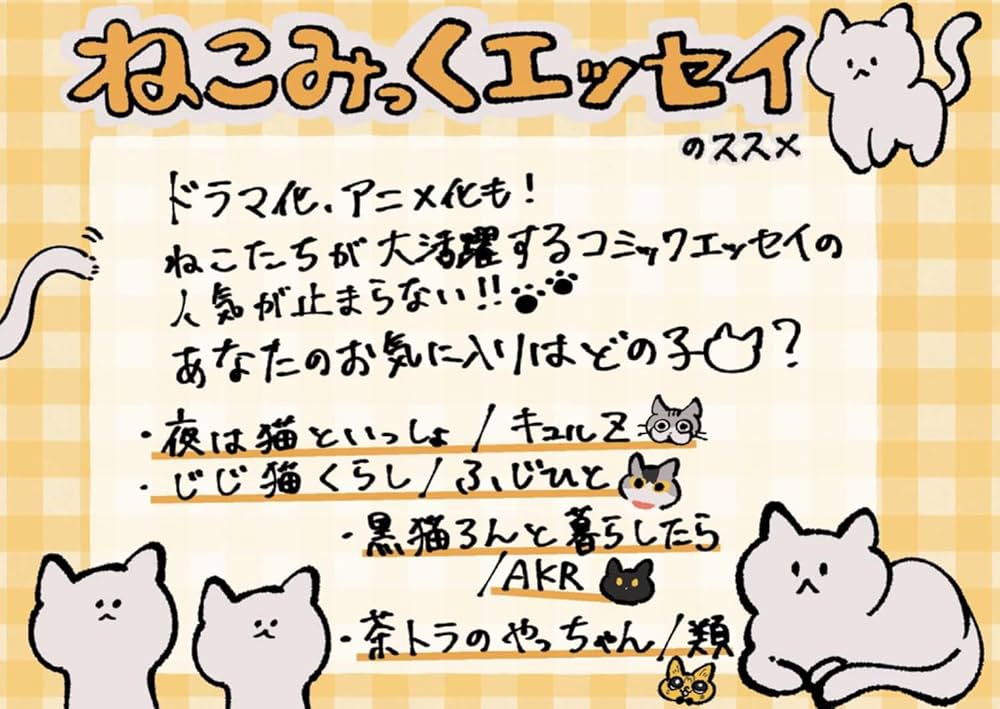 ねこみっくエッセイ
のススメ
ドラマ化、アニメ化も!
ねこたちが大活躍するコミックエッセイの
人気が止まらない!!
あなたのお気に入りはどの子?
・夜は猫といっしょ/キュルZ
・じじ猫くらし/ふじひと
・黒猫ろんと暮らしたら
/AKR
・茶トラのやっちゃん/類